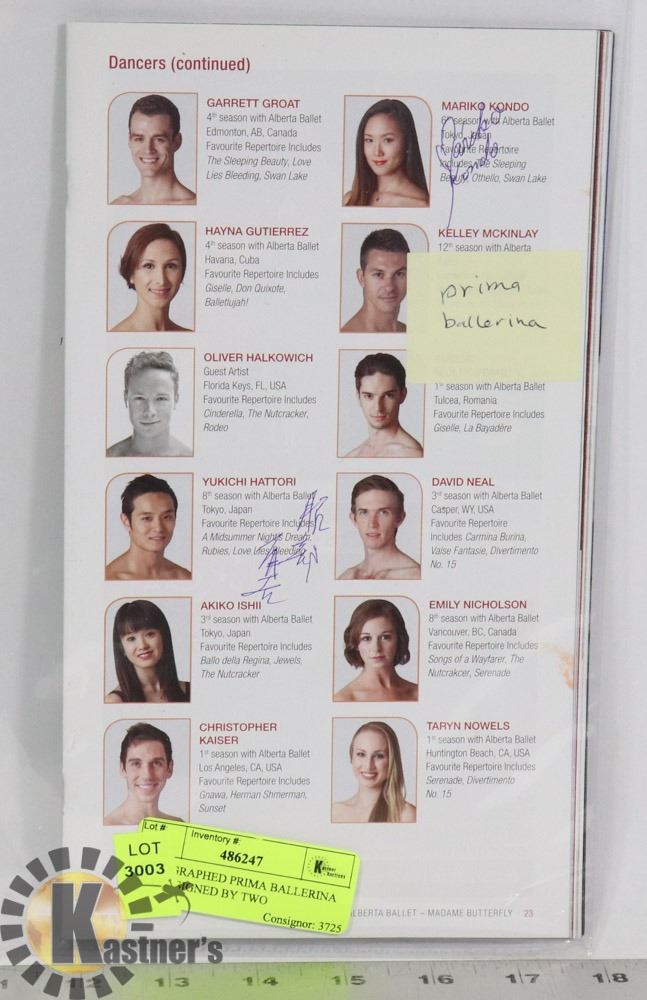 Dancers (continued)
GARRETT GROAT
4th season with Alberta Ballet
Edmonton, AB, Canada
Favourite Repertoire Includes
The Sleeping Beauty, Love
Lies Bleeding, Swan Lake
MARIKO KONDO
6th season with Alberta Ballet
Tokyo, Japan
Favourite Repertoire
Includes The Sleeping
Beauty, Othello, Swan Lake
Mariko
Kondo
HAYNA GUTIERREZ
4th season with Alberta Ballet
Havana, Cuba
Favourite Repertoire Includes
Giselle, Don Quixote,
Balletlujah!
KELLEY MCKINLAY
12th season with Alberta
prima
ballerina
OLIVER HALKOWICH
Guest Artist
Florida Keys, FL, USA
Favourite Repertoire Includes
Cinderella, The Nutcracker,
Rodeo
1st season with Alberta Ballet
Tulcea, Romania
Favourite Repertoire Includes
Giselle, La Bayadère
YUKICHI HATTORI
8th season with Alberta Ballet
Tokyo, Japan
Favourite Repertoire Includes
A Midsummer Night's Dream,
Rubies, Love Lies Bleeding
DAVID NEAL
3rd season with Alberta Ballet
Casper, WY, USA
Favourite Repertoire
Includes Carmina Burina,
Valse Fantasie, Divertimento
No. 15
AKIKO ISHII
3rd season with Alberta Ballet
Tokyo, Japan
Favourite Repertoire Includes
Ballo della Regina, Jewels,
The Nutcracker
EMILY NICHOLSON
8th season with Alberta Ballet
Vancouver, BC, Canada
Favourite Repertoire Includes
Songs of a Wayfarer, The
Nutrakcer, Serenade
CHRISTOPHER
KAISER
1st season with Alberta Ballet
Los Angeles, CA, USA
Favourite Repertoire Includes
Gnawa, Herman Shmerman,
Sunset
TARYN NOWELS
1st season with Alberta Ballet
Huntington Beach, CA, USA
Favourite Repertoire Includes
Serenade, Divertimento
No. 15
Lot #:
LOT
3003
Inventory #:
486247
Kastner Auctions
GRAPHED PRIMA BALLERINA
SIGNED BY TWO
Consignor: 3725
ALBERTA BALLET – MADAME BUTTERFLY 23
Kastner's
12 13 14 15 16 17 18